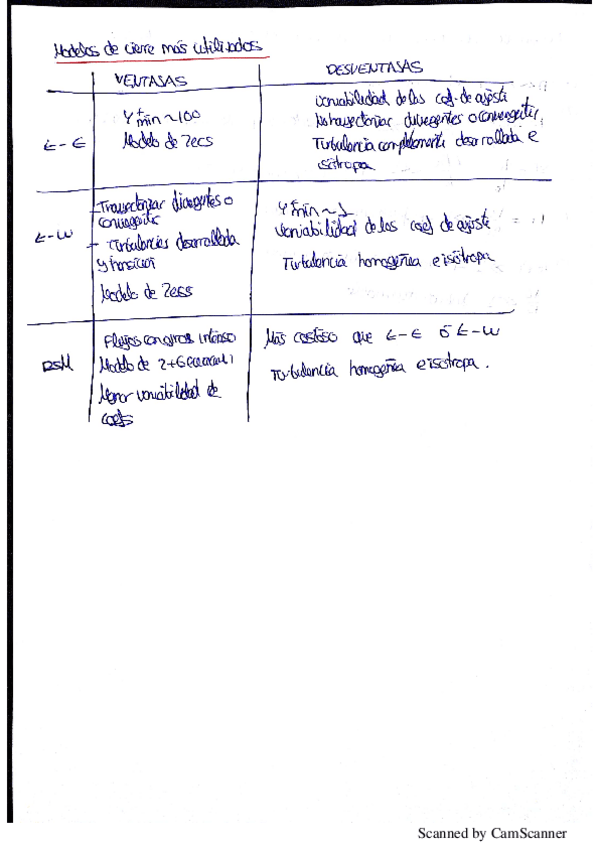 Modelos de cierre más utilizados
VENTAJAS
DESVENTAJAS
k-ε
y+min ~100
Modelo de 2ecs
Variabilidad de los coef. de ajuste
No trayectorias divergentes o convergentes
Turbulencia completamente desarrollada e
isótropa
k-w
- Trayectorias divergentes o
convergentes
- Turbulencias desarrollada
y transición
Modelo de 2ecs
y+min ~1
Variabilidad de los coef de ajuste
Turbulencia homogénea e isótropa
RSM
Flujos con giros intenso
Modelo de 2+6
Menor variabilidad de
coefs
Más costoso que k-ε ó k-w
Turbulencia homogénea e isótropa.
Scanned by CamScanner